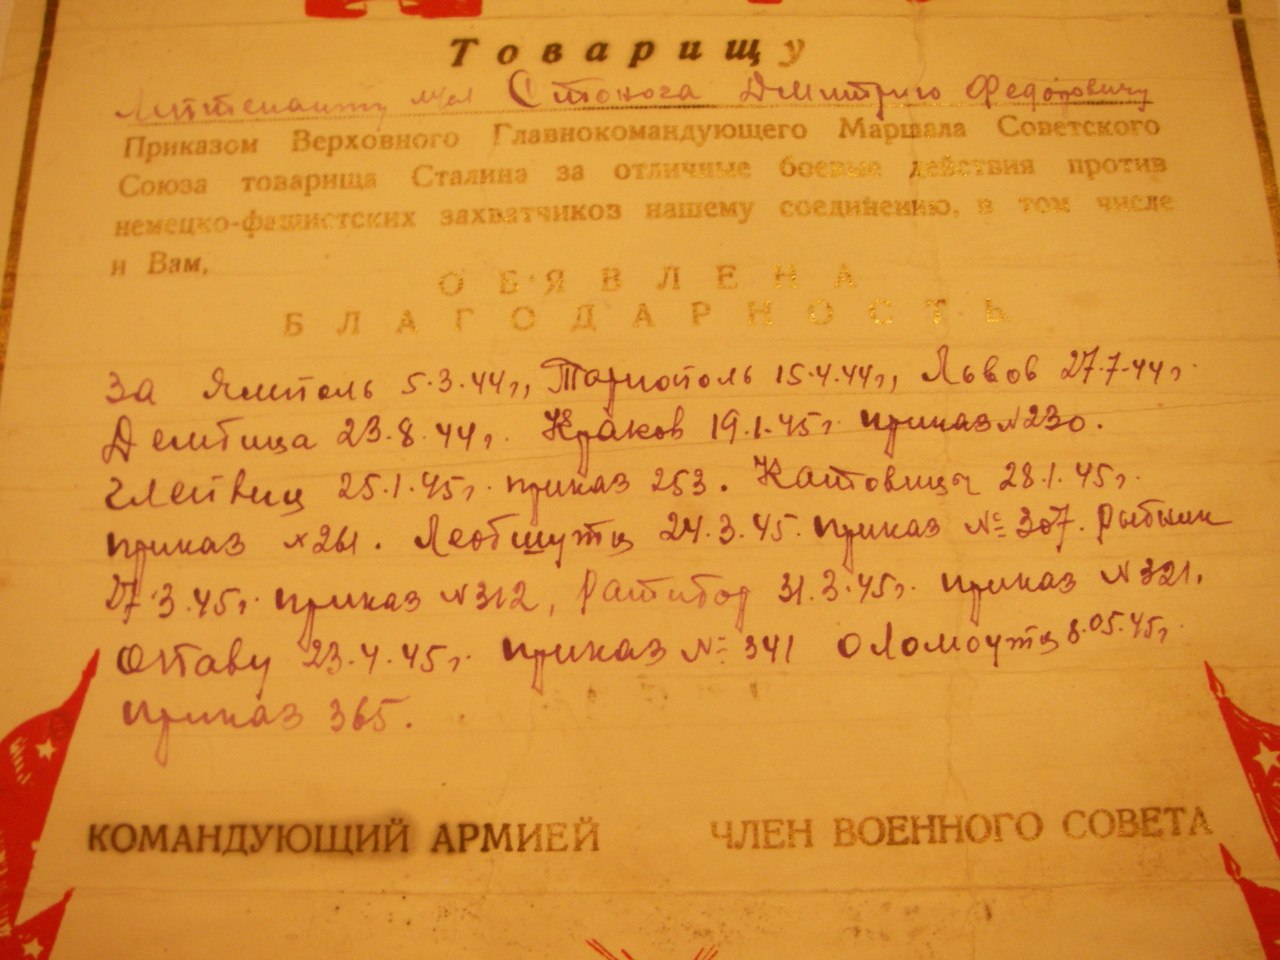 Товарищу
лейтенанту мл Стонога Дмитрию Федоровичу
Приказом Верховного Главнокомандующего Маршала Советского
Союза товарища Сталина за отличные боевые действия против
немецко-фашистских захватчиков нашему соединению, в том числе
и Вам,
ОБ'ЯВЛЕНА
БЛАГОДАРНОСТЬ
За Ямполь 5.3.44г, Тарнополь 15.4.44г, Львов 27.7.44г.
Дембица 23.8.44г. Краков 19.1.45г приказ №230.
Глейвиц 25.1.45г. приказ 253. Катовицы 28.1.45г.
приказ №261. Леобшутц 24.3.45. приказ №307. Рыбник
27.3.45г. приказ №312, Ратибор 31.3.45г. приказ №321.
Опаву 23.4.45г. приказ № 341 Оломоутц 8.05.45г.
приказ 365.
КОМАНДУЮЩИЙ АРМИЕЙ ЧЛЕН ВОЕННОГО СОВЕТА